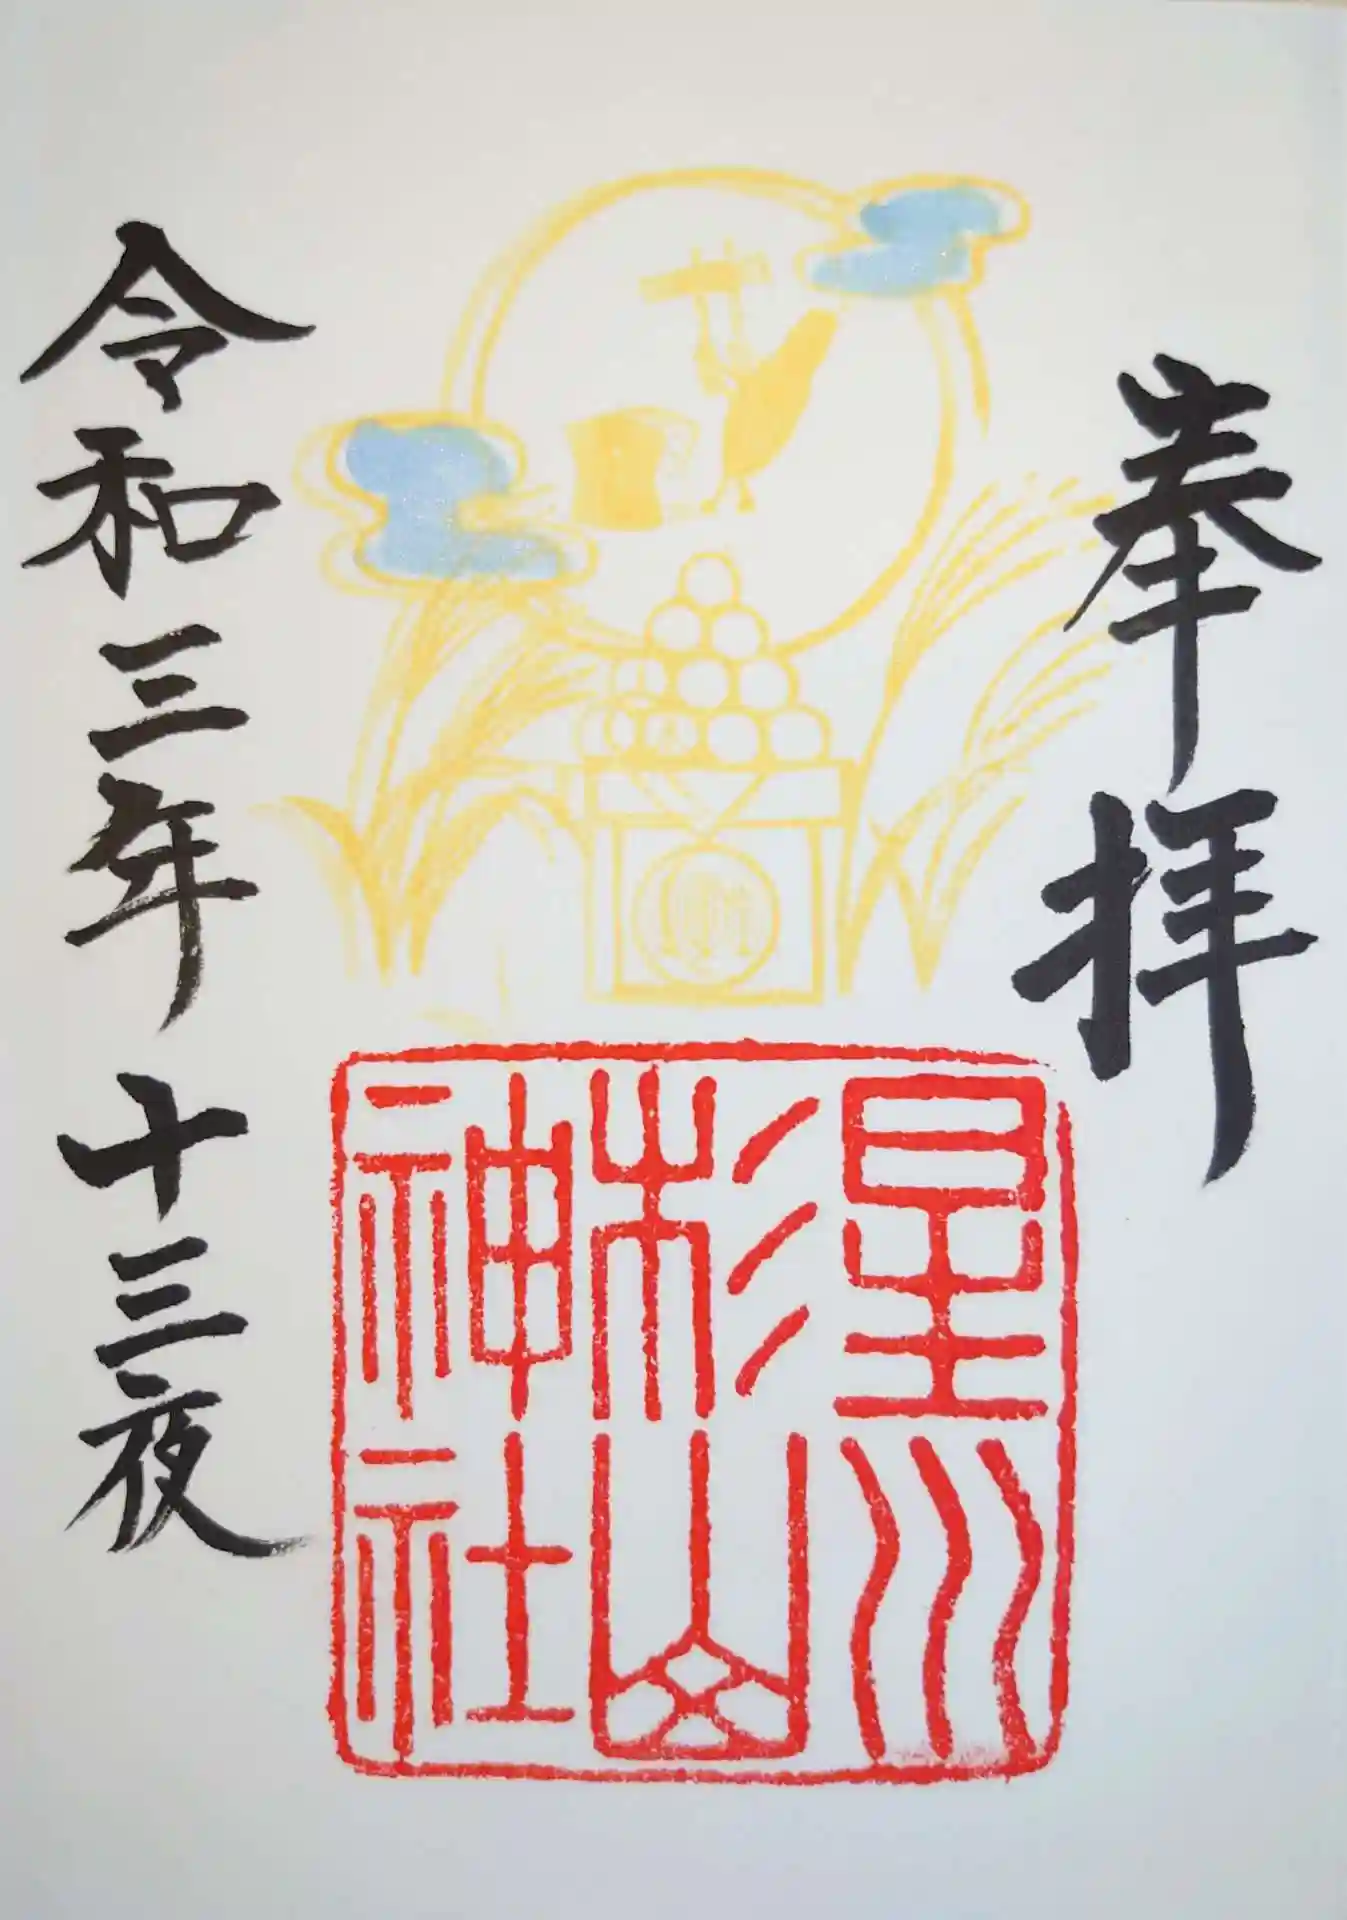 奉拝
星川
杉山
神社
令和三年 十三夜